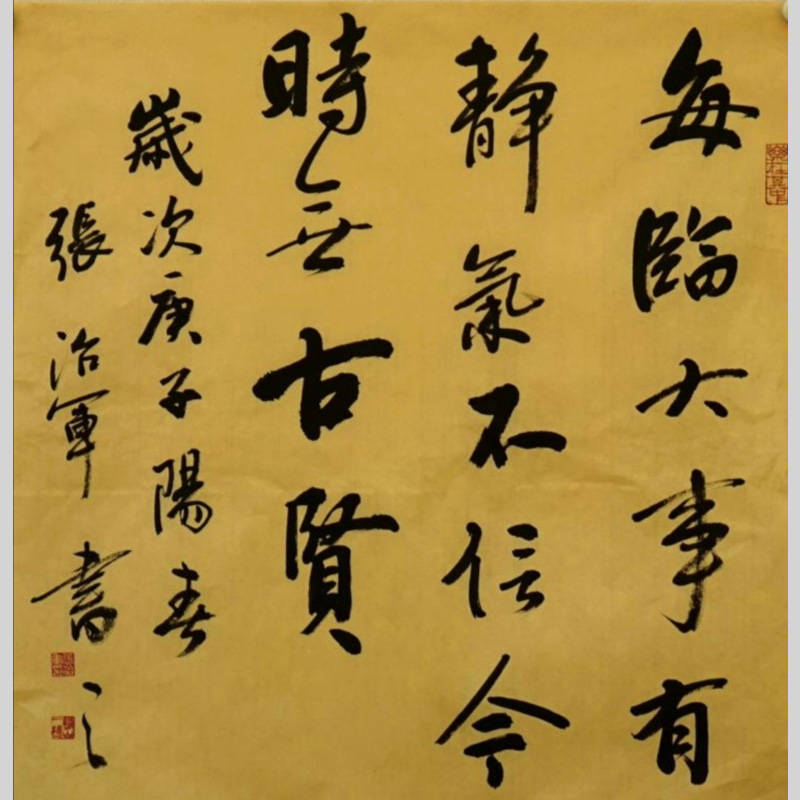 每臨大事有
静氣不信今
時無古賢
歲次庚子陽春
張治軍書之